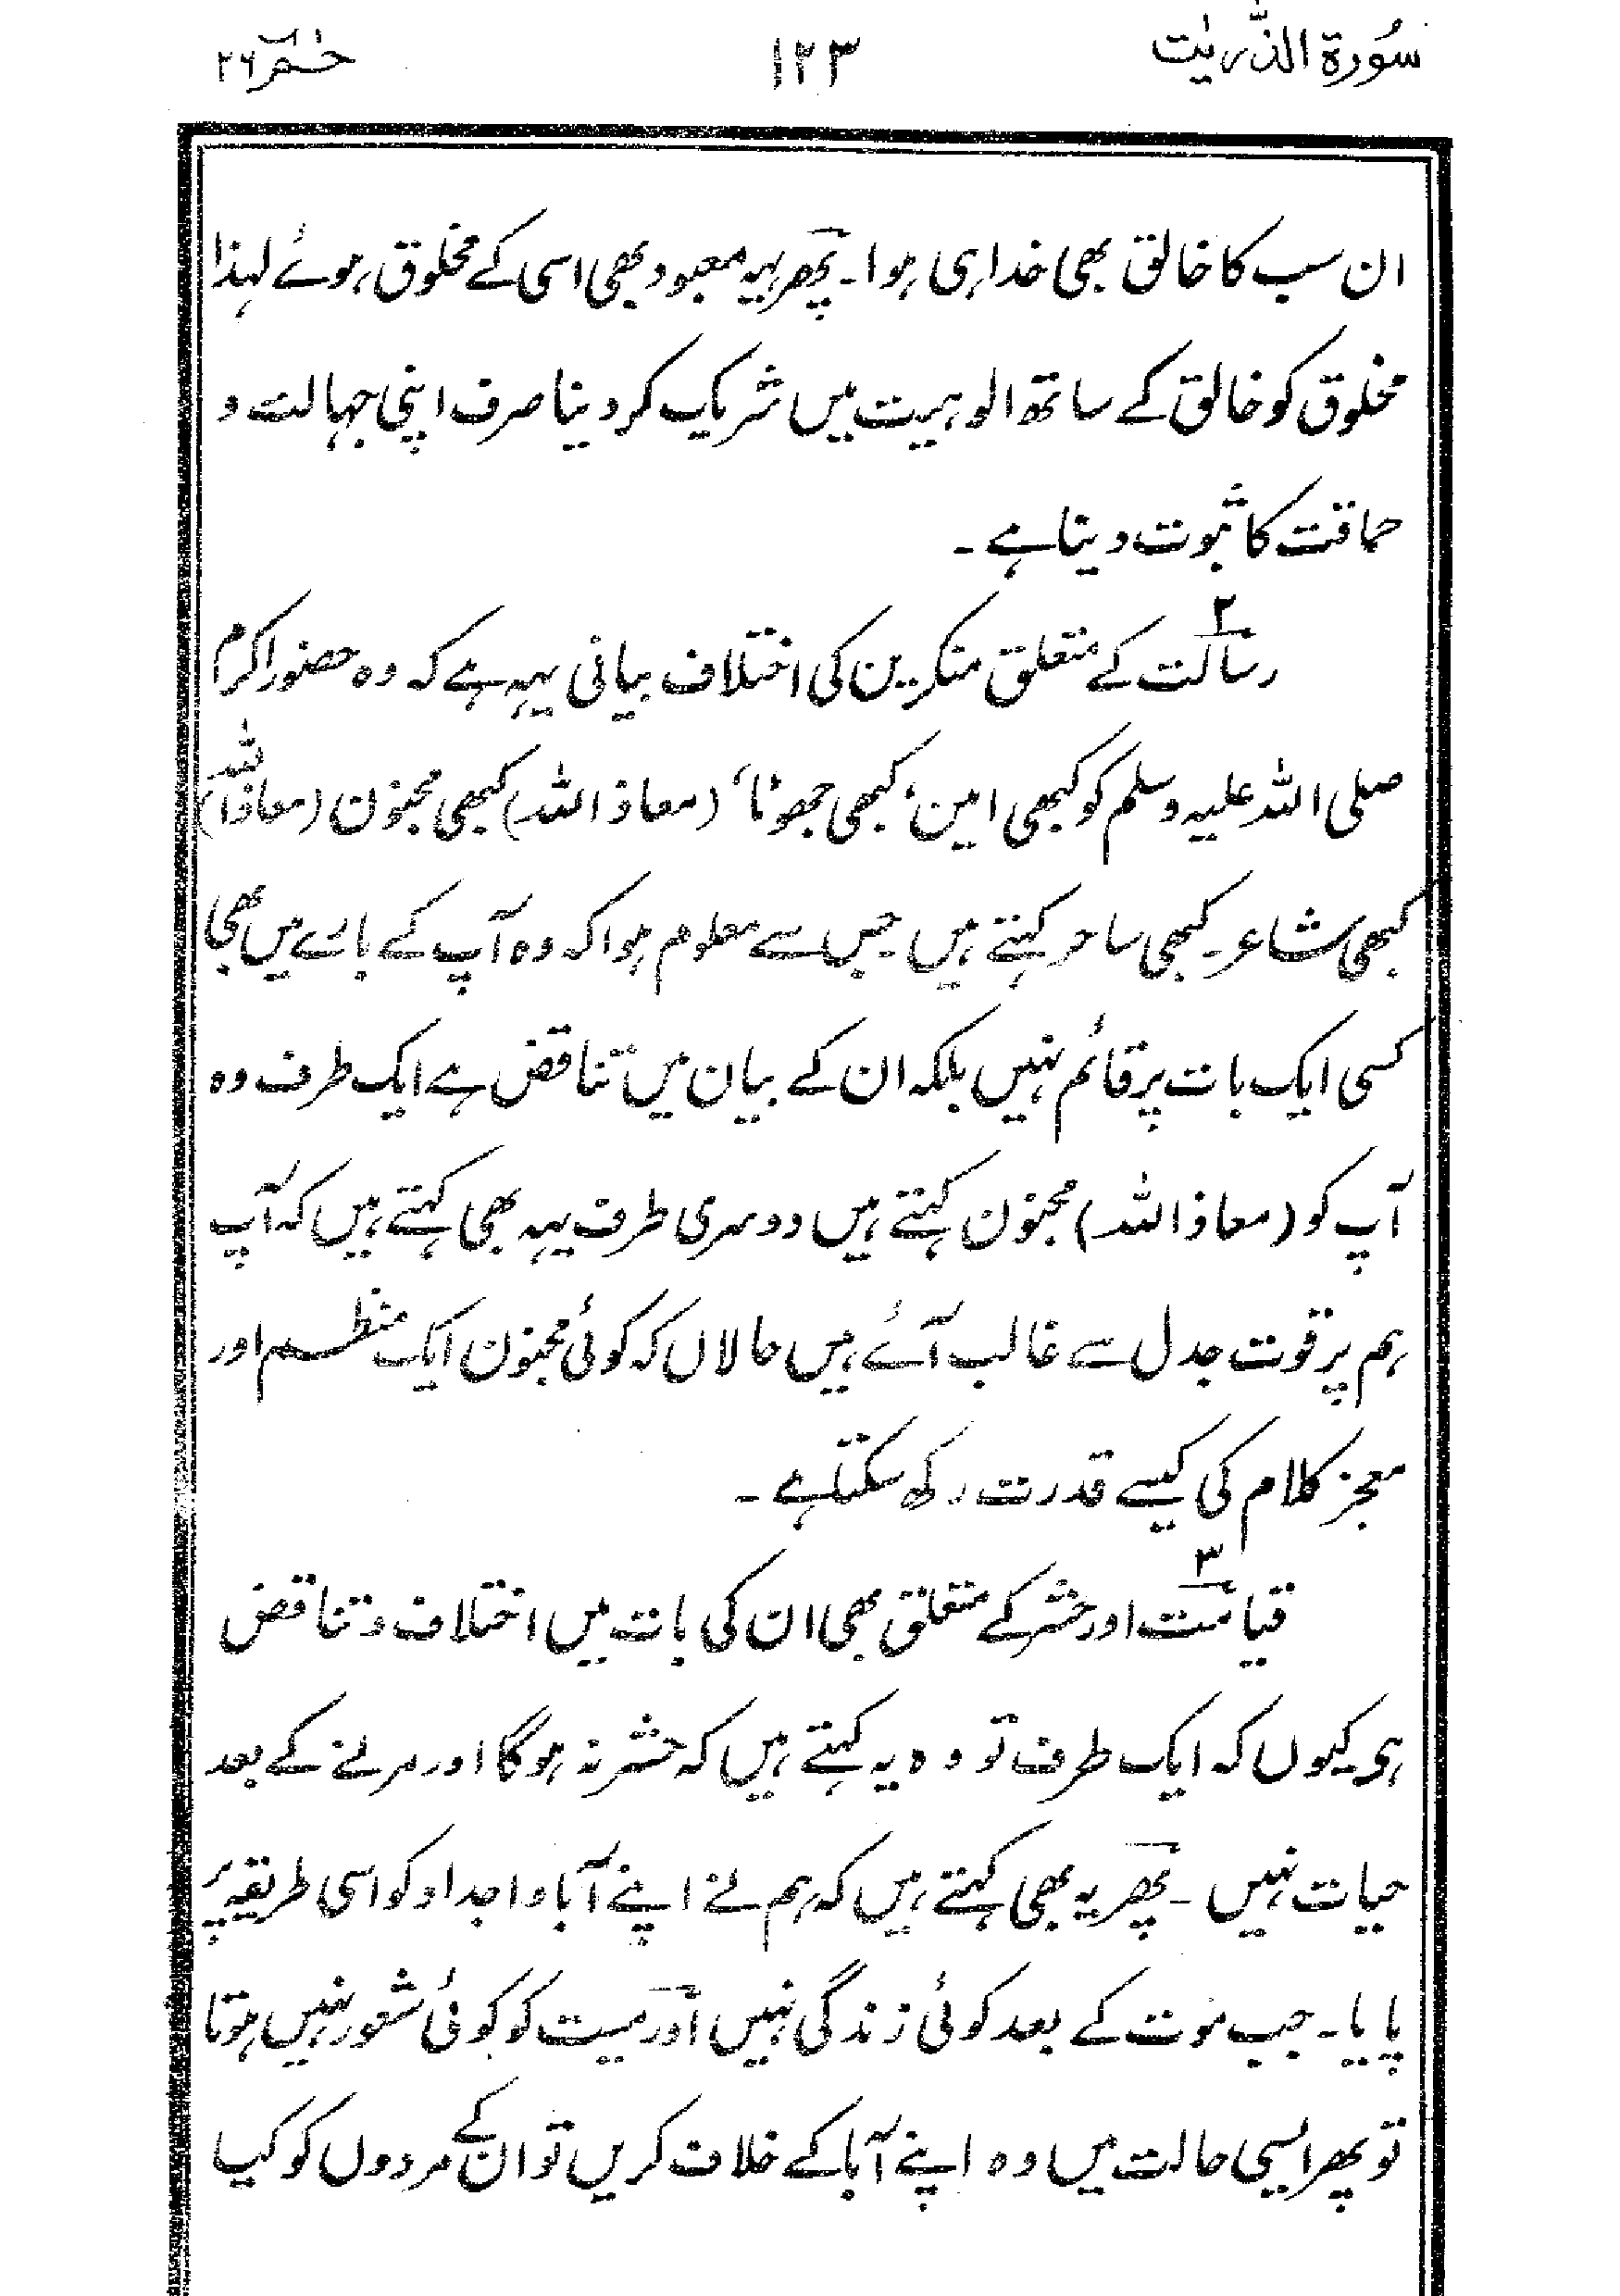 سُورۃ الذّٰریٰت ۱۲۳ حٰمٓ ۲۶
ان سب کا خالق بھی خدا ہی ہوا۔ پھر یہ معبود بھی اسی کے مخلوق ہوئے لہٰذا
مخلوق کو خالق کے ساتھ الوہیت میں شریک کر دینا صرف اپنی جہالت و
حماقت کا ثبوت دینا ہے۔
۲
رسالت کے متعلق منکرین کی اختلاف بیانی یہہ ہے کہ وہ حضور اکرم
صلی اللہ علیہ وسلم کو کبھی امین، کبھی جھوٹا، (معاذ اللہ) کبھی مجنون (معاذ اللہ)
کبھی شاعر۔ کبھی ساحر کہتے ہیں۔ جس سے معلوم ہوا کہ وہ آپ کے بارے میں بھی
کسی ایک بات پر قائم نہیں بلکہ ان کے بیان میں تناقض ہے ایک طرف وہ
آپ کو (معاذ اللہ) مجنون کہتے ہیں دوسری طرف یہہ بھی کہتے ہیں کہ آپ
ہم پر قوت جدل سے غالب آئے ہیں حالاں کہ کوئی مجنون ایک منظم اور
معجز کلام کی کیسے قدرت رکھ سکتا ہے۔
۳
قیامت اور حشر کے متعلق بھی ان کی بات میں اختلاف و تناقض
ہی۔ کیوں کہ ایک طرف تو وہ یہ کہتے ہیں کہ حشر نہ ہوگا اور مرنے کے بعد
حیات نہیں۔ پھر یہ بھی کہتے ہیں کہ ہم نے اپنے آبا و اجداد کو اسی طریقہ پر
پایا۔ جب موت کے بعد کوئی زندگی نہیں اور میت کو کوئی شعور نہیں ہوتا
تو پھر ایسی حالت میں وہ اپنے آبا کے خلاف کریں تو ان کے مردوں کو کیا